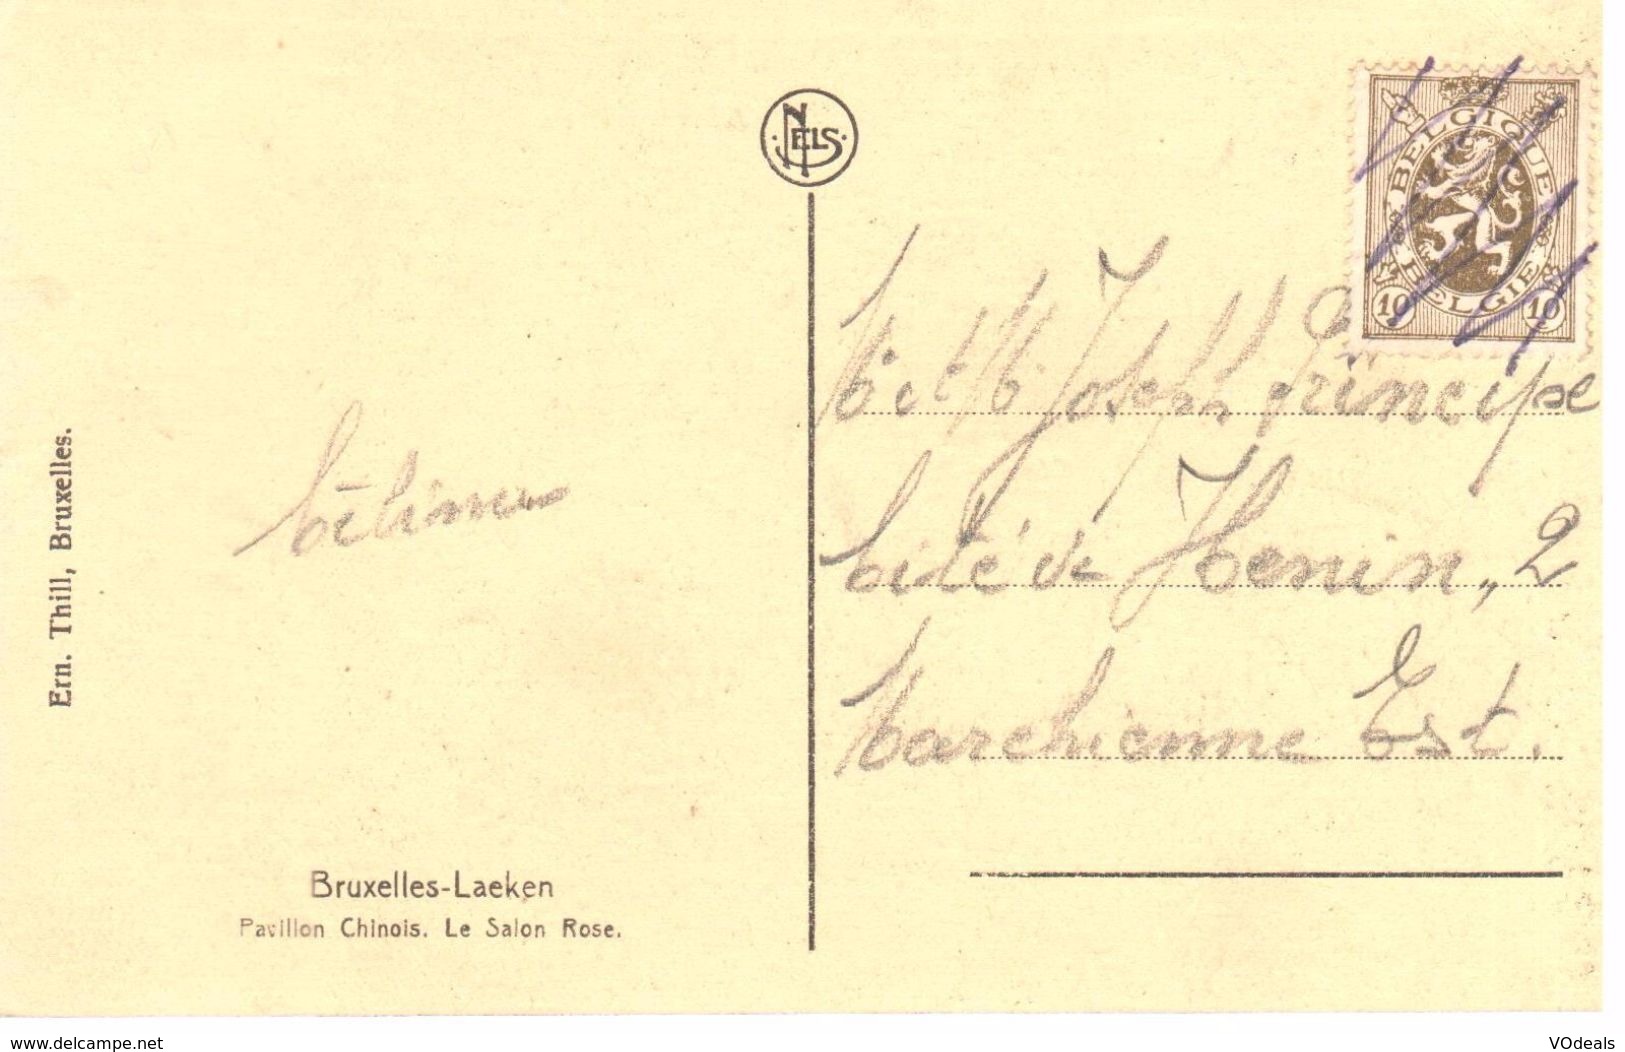 NELS
BELGIQUE
BELGIE
10 10
Mr et M. Joseph Principe
Cité de Henin, 2
Marchienne Est.
Célina
Ern. Thill, Bruxelles.
Bruxelles-Laeken
Pavillon Chinois. Le Salon Rose.
www.delcampe.net
VOdeals